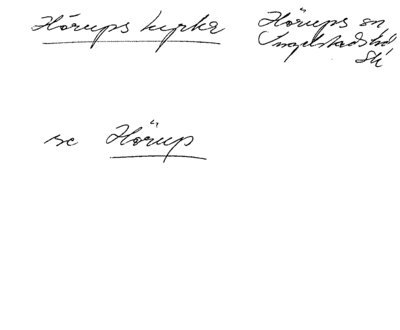 Hörups kyrka
Hörups sn
Ingelstads hd
Sk
se Hörup